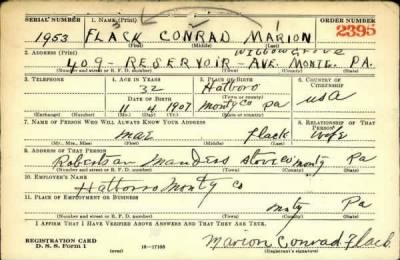 SERIAL NUMBER 1. NAME (Print) ORDER NUMBER
1953 FLACK CONRAD MARION 2395
(First) (Middle) (Last)
2. ADDRESS (Print) WILLOW GROVE
409 - RESERVOIR - AVE. MONTG. PA.
(Number and street or R. F. D. number) (Town) (County) (State)
3. TELEPHONE 4. AGE IN YEARS 5. PLACE OF BIRTH 6. COUNTRY OF CITIZENSHIP
32 Hatboro
DATE OF BIRTH (Town or county)
11 4 1907 Montg Co Pa USA
(Exchange) (Number) (Mo.) (Day) (Yr.) (State or country)
7. NAME OF PERSON WHO WILL ALWAYS KNOW YOUR ADDRESS 8. RELATIONSHIP OF THAT PERSON
Mae Flack Wife
(Mr., Mrs., Miss) (First) (Middle) (Last)
9. ADDRESS OF THAT PERSON
Pa
(Number and street or R. F. D. number) (Town) (County) (State)
10. EMPLOYER'S NAME
Hatboro Monty Co
11. PLACE OF EMPLOYMENT OR BUSINESS
Pa
(Number and street or R. F. D. number) (Town) (County) (State)
I AFFIRM THAT I HAVE VERIFIED ABOVE ANSWERS AND THAT THEY ARE TRUE.
REGISTRATION CARD
D. S. S. Form 1 (over) 16—17105 Marion Conrad Flack
(Registrant's signature)